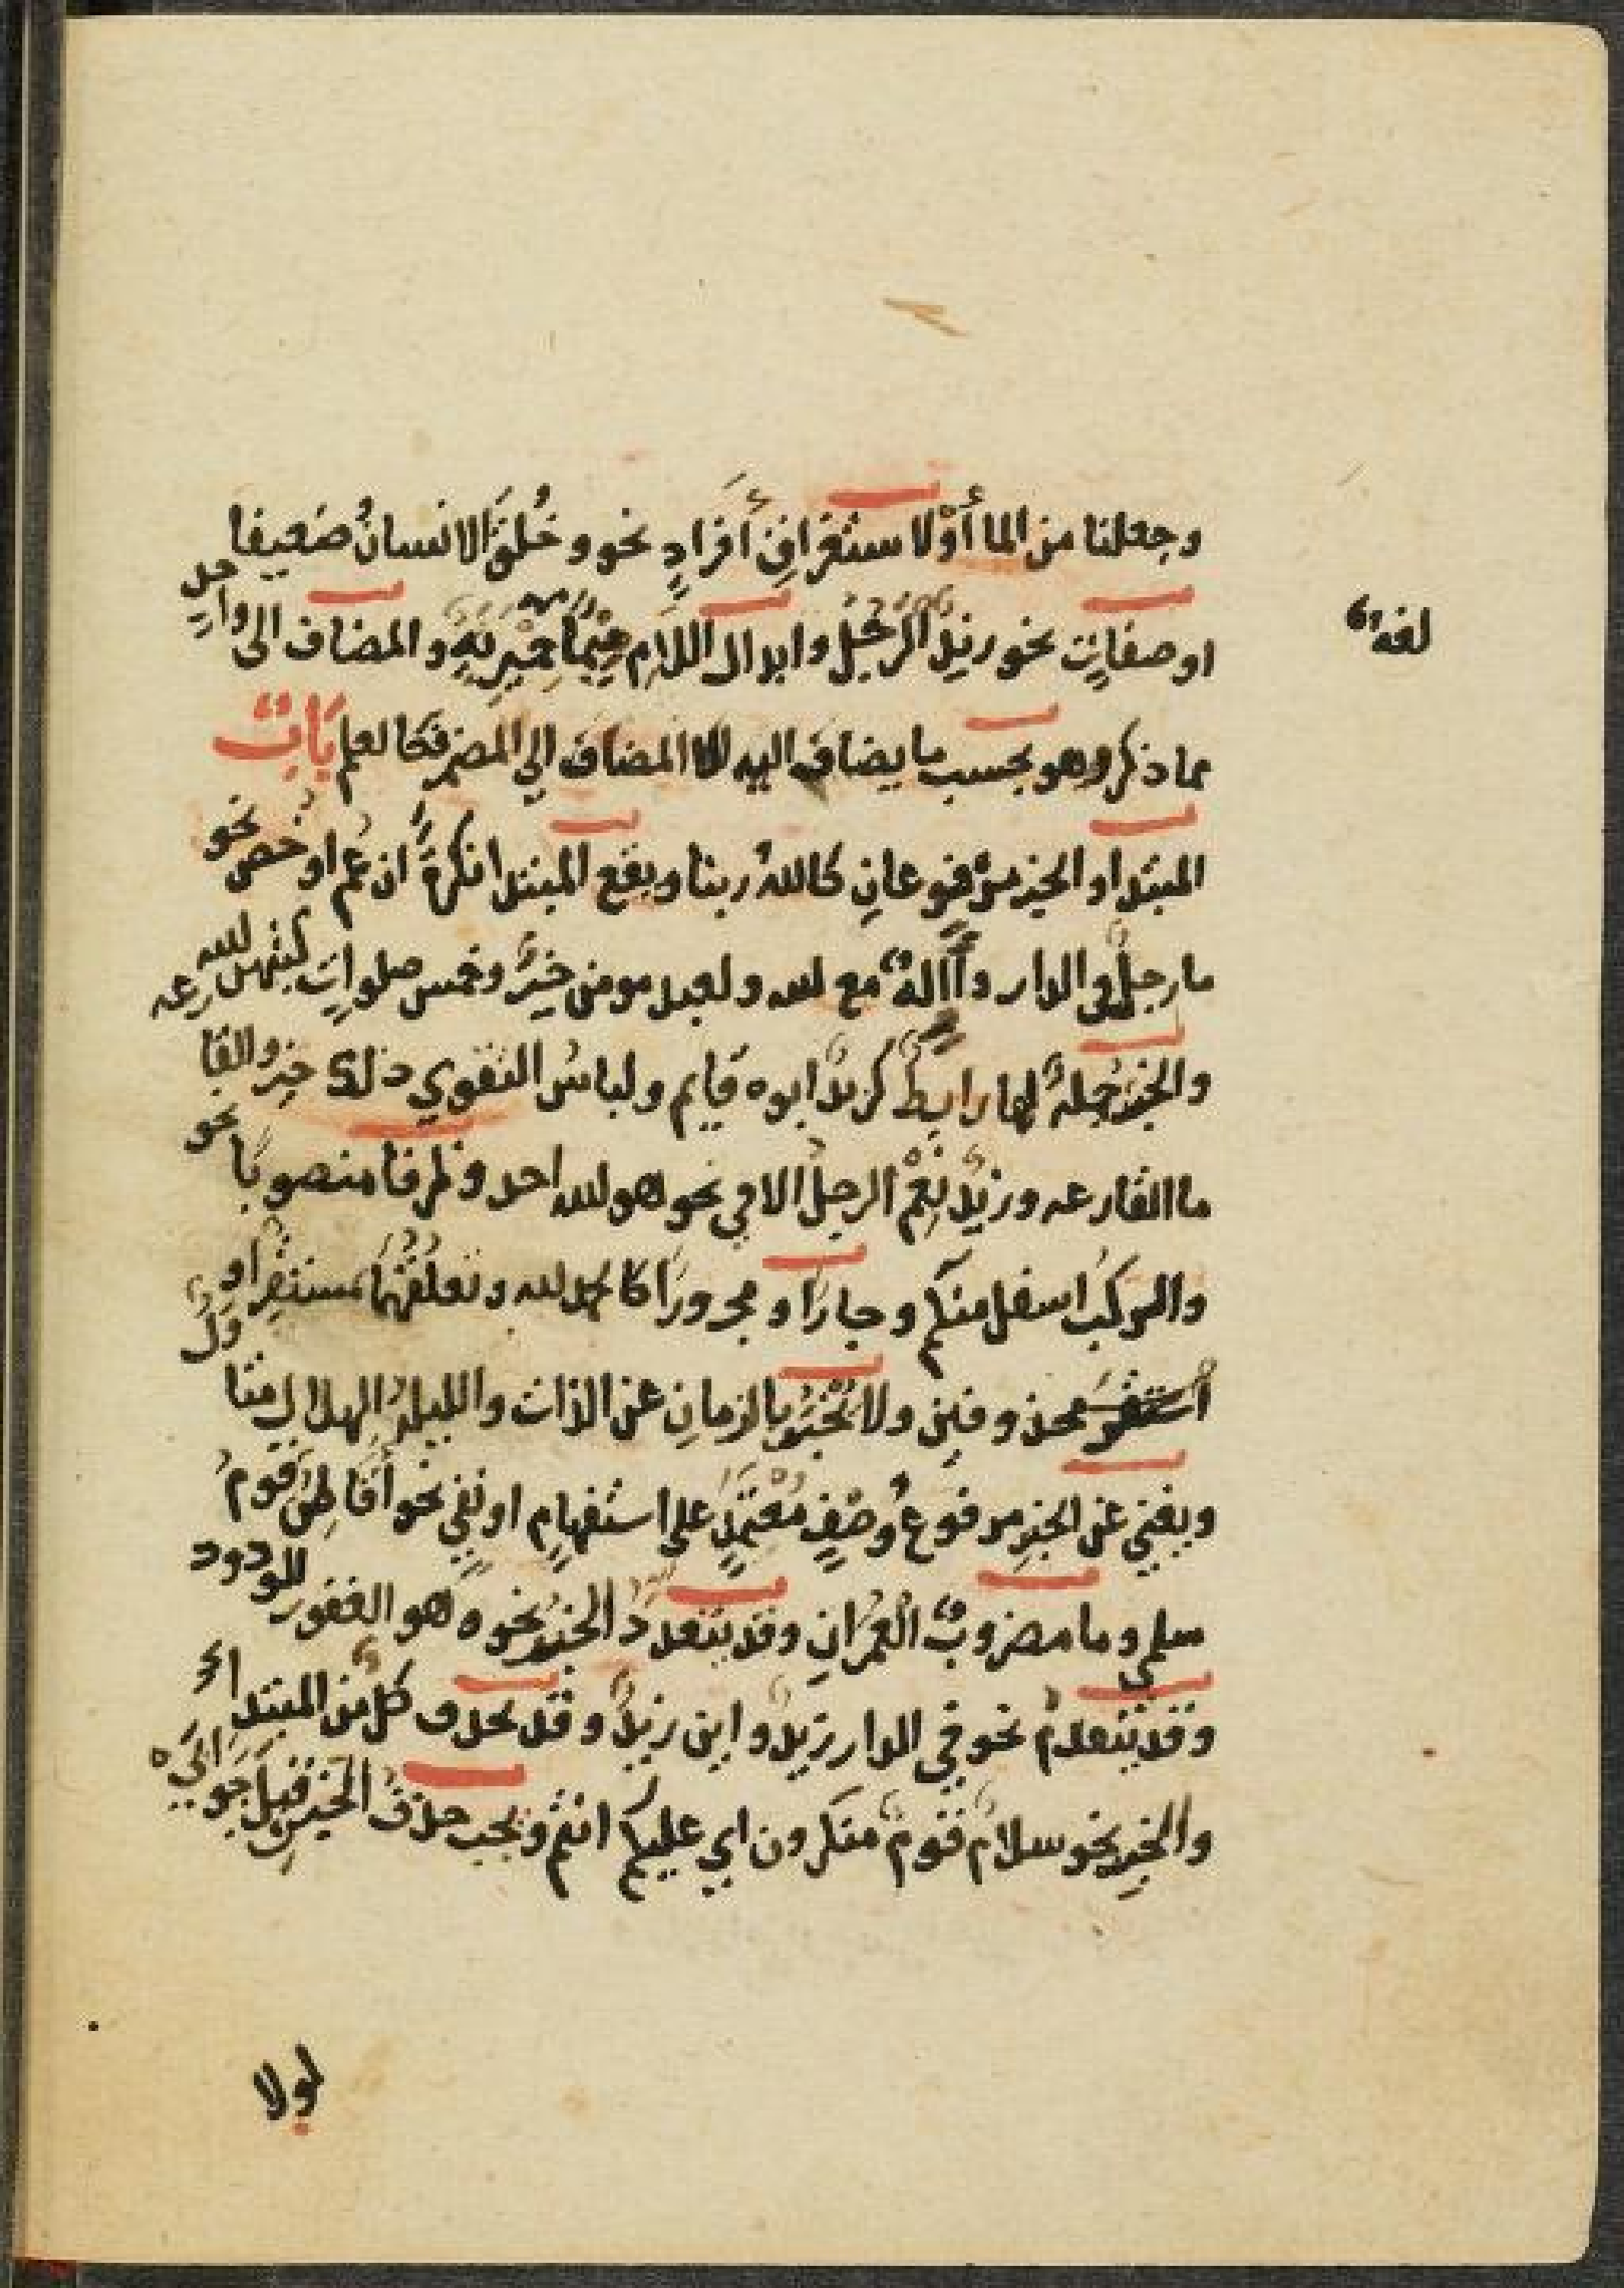 وجعلنا من الما أوْ لاستغراقِ أفرَادٍ نحو وخُلِقَ الانسانُ ضَعيفا
او صفاتٍ نحو زيدٌ الرَّجُلُ وابدال اللام مِيْمًا حِمْيَرِيَّةٌ والمضاف الى واحد
لغةٌ
مما ذكر وهو بحسب ما يضاف اليه الا المضافَ الي المضمر فكالعلم بَابٌ
المبتدا والخبر مرْفوعانِ كاللهُ ربنا ويقع المبتدا نكرةً ان عُم او خص نحو
ما رجلٌ في الدار وأإلهٌ مع الله ولعبد مومن خيرٌ وخمس صلواتٍ كتبهن الله
والخبر جُملةً لها رابطٌ كزيدٌ ابوه قايم ولباسُ التقوي ذلك خير والقارعه
ما القارعه وزيدٌ نِعْمَ الرجلُ الا في نحو هو الله احد وظرفا منصوبًا نحو
والركبُ اسفل منكم وجارًا ومجرورًا كالحمد لله وتعلُّقُهُمَا بمستقِرٍّ او
استقرّ محذوفين ولا يُخْبَرُ بالزمانِ عن الذات والليلةُ الهلال متاوَّلٌ
ويغني عن الخبرِ مرفوعُ وصْفٍ مُعْتَمِدٍ على استفهامٍ او نفيٍ نحو أقاطِنٌ قومُ
سلمي وما مضروبٌ العَمْرَانِ وقد يتعددُ الخبرُ نحو وهو الغفور الودود
وقد يتقدمُ نحو في الدار زيدٌ واين زيدٌ وقد يحذف كلٌ من المبتدإ
والخبرِ نحو سلامٌ قومٌ منكرون اي عليكم انتم ويجب حذفُ الخبرِ قبلَ جوابي
لولا